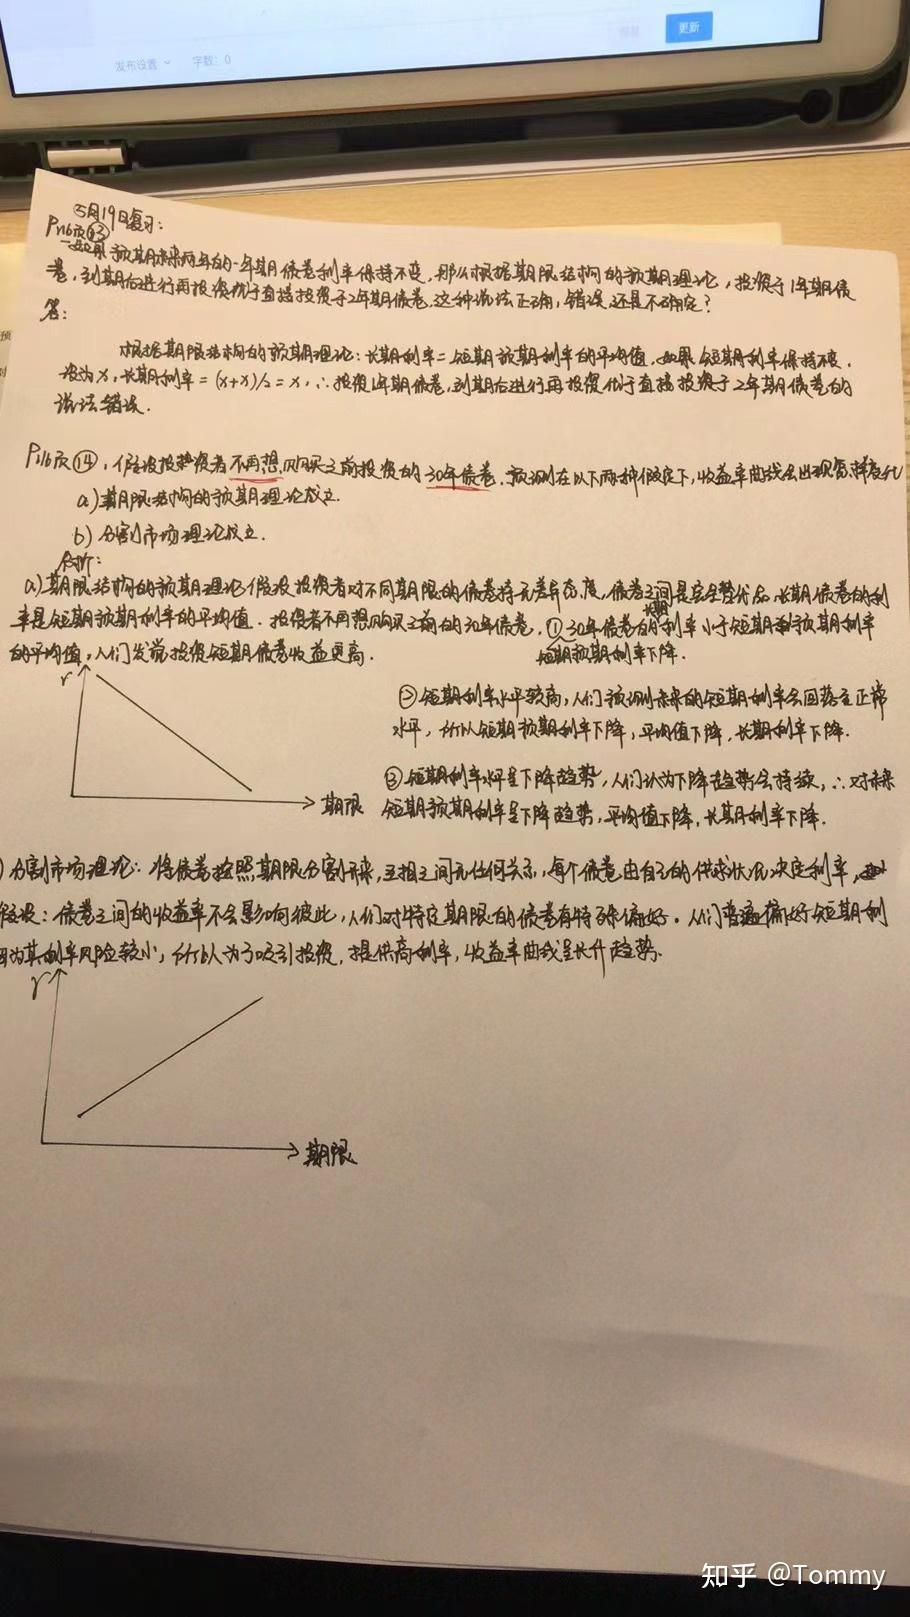 更新
发布设置 字数：0
5月19日复习：
P116页⑬
一如果预期未来两年的一年期债卷利率保持不变，那么根据期限结构的预期理论，投资于1年期债
卷，到期后进行再投资优于直接投资于2年期债卷.这种说法正确，错误还是不确定？
答：
根据期限结构的预期理论：长期利率=短期预期利率的平均值.如果短期利率保持不变.
设为x，长期利率=(x+x)/2=x，∴投资1年期债卷，到期后进行再投资优于直接投资于2年期债卷的
说法错误.
P116页⑭，假设投资者不再想购买之前投资的30年债卷，预测在以下两种假定下，收益率曲线会出现怎样变化
a)期限结构的预期理论成立.
b)分割市场理论成立.
分析：
a)期限结构的预期理论假设投资者对不同期限的债卷持无差异态度，债卷之间是完全替代品.长期债卷的利
率是短期预期利率的平均值.投资者不再想购买之前的30年债卷，①30年债卷的利率小于短期预期利率
的平均值，人们发觉投资短期债卷收益更高.
短期预期利率下降.
r
②短期利率水平较高，人们预测未来的短期利率会回落至正常
水平，所以短期预期利率下降，平均值下降，长期利率下降.
③短期利率水平呈下降趋势，人们认为下降趋势会持续，∴对未来
期限
短期预期利率呈下降趋势，平均值下降，长期利率下降.
)分割市场理论：将债卷按照期限分割开来，互相之间无任何关系，每个债卷由自己的供求状况决定利率，
假设：债卷之间的收益率不会影响彼此，人们对特定期限的债卷有特殊偏好.人们普遍偏好短期利
因为其利率风险较小，所以为了吸引投资，提供高利率，收益率曲线呈上升趋势.
r
期限
知乎 @Tommy